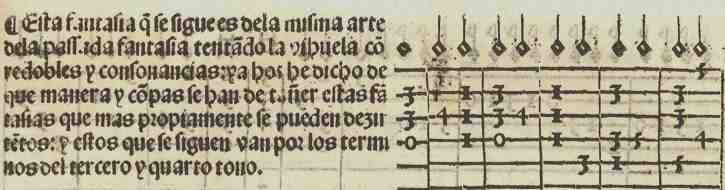 ¶ Esta fantasia q̃ se sigue es dela misma arte
dela passada fantasia tentãdo la vihuela cõ
redobles y consonancias: ya hos he dicho de
que manera y cõpas se han de tañer estas fã
tasias que mas propiamente se pueden dezir
tẽtos: y estos que se siguen van por los termi
nos del tercero y quarto tono.